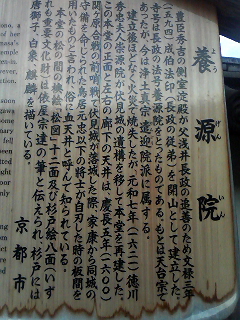 養源院
げん
いん
豊臣秀吉の側室淀殿が父浅井長政の追善のため文禄三年
(一五九四)成伯法印(長政の従弟)を開山として建立した。
寺号は長政の法名養源院をとったものである。もとは天台宗で
あったが、今は浄土真宗遣迎院派に属する。
建立後ほどなく火災で焼失したが、元和七年(一六二一)徳川
秀忠夫人崇源院が伏見城の遺構を移して本堂を再建した。
この本堂の正面と左右の廊下の天井は、慶長五年(一六〇〇)
関ヶ原合戦の前哨戦で伏見城が落城した際、家康から同城の
守備を命ぜられた鳥居元忠以下の将士が自刃した時の板間を
用いたものとされ、俗に血天井と呼んで知られている。
本堂の松の間の襖絵(松図)十二面及び杉戸絵八面(いず
れも重要文化財)は俵屋宗達の筆と伝えられ、杉戸には
唐獅子、白象、麒麟を描いている。
京都市